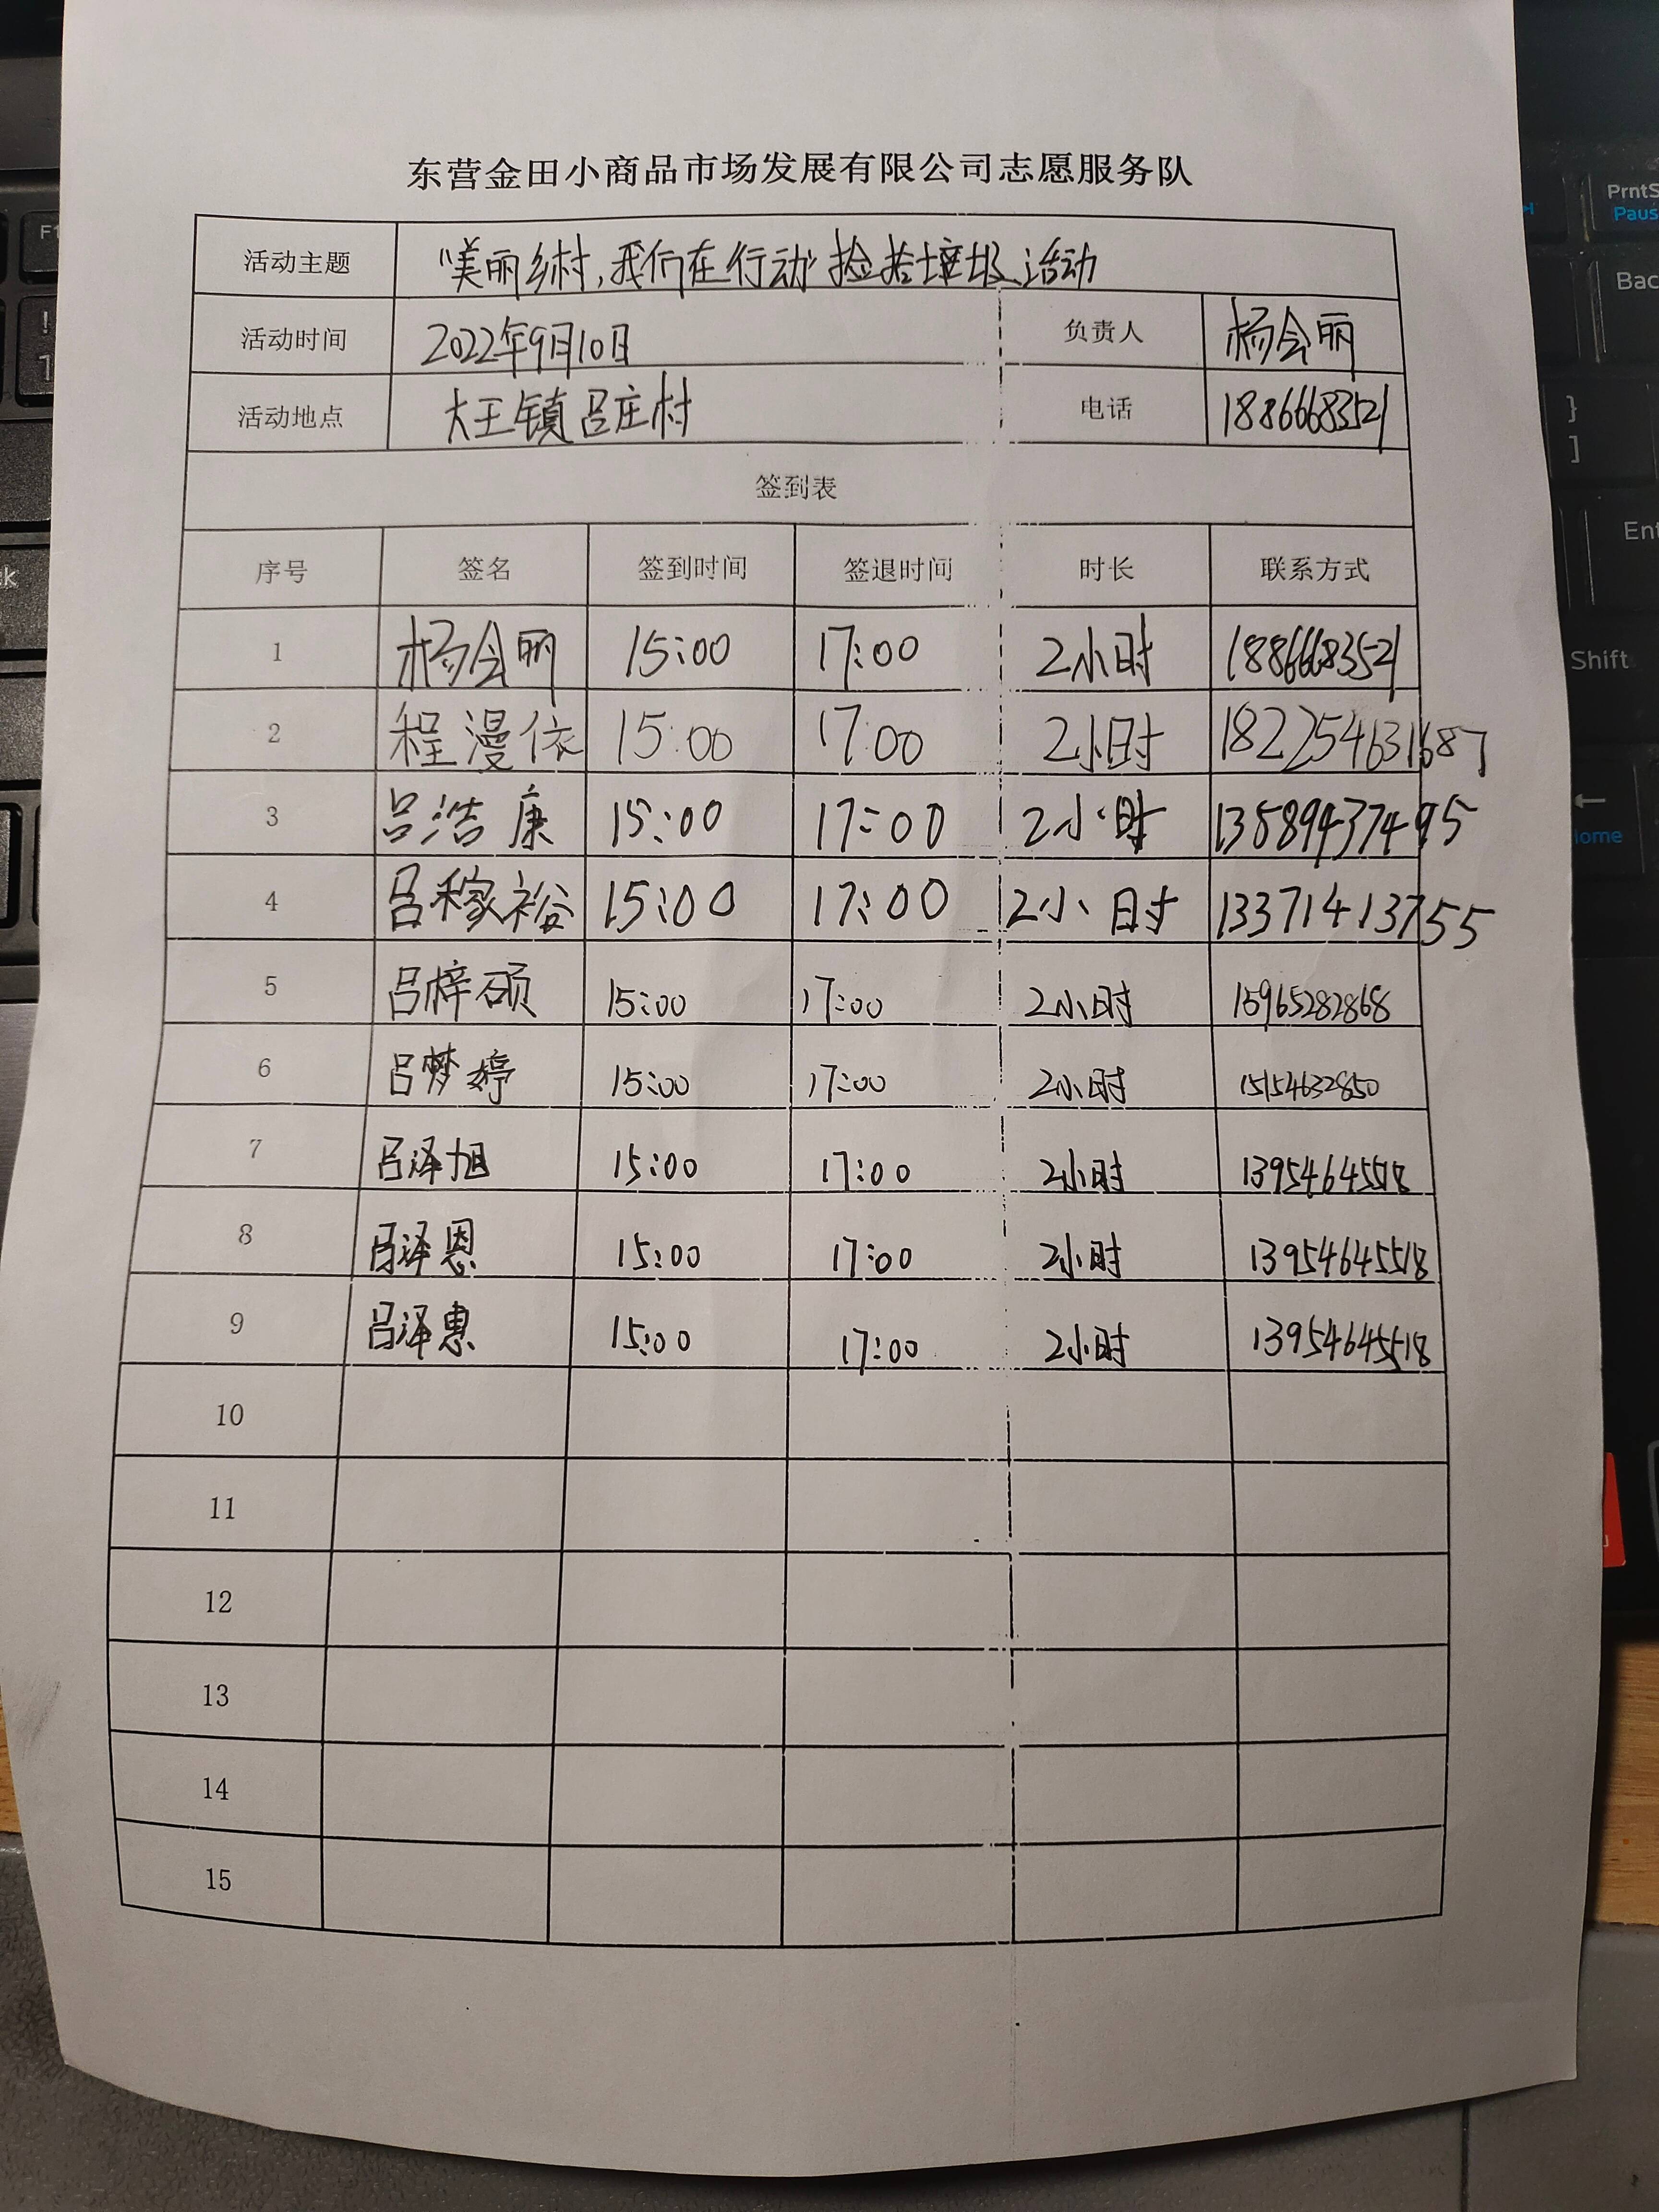 东营金田小商品市场发展有限公司志愿服务队
活动主题 "美丽乡村,我们在行动"捡拾垃圾活动
活动时间 2022年9月10日 负责人 杨会丽
活动地点 大王镇吕庄村 电话 18866683521
签到表
序号 签名 签到时间 签退时间 时长 联系方式
1 杨会丽 15:00 17:00 2小时 18866683521
2 程漫依 15:00 17:00 2小时 182254631687
3 吕浩康 15:00 17:00 2小时 13589437495
4 吕稼裕 15:00 17:00 2小时 13371413755
5 吕梓硕 15:00 17:00 2小时 15965282868
6 吕梦婷 15:00 17:00 2小时 15154632850
7 吕泽旭 15:00 17:00 2小时 13954645518
8 吕泽恩 15:00 17:00 2小时 13954645518
9 吕泽惠 15:00 17:00 2小时 13954645518
10
11
12
13
14
15
PrntS
Paus
Bac
}
]
Ent
Shift
←
Home